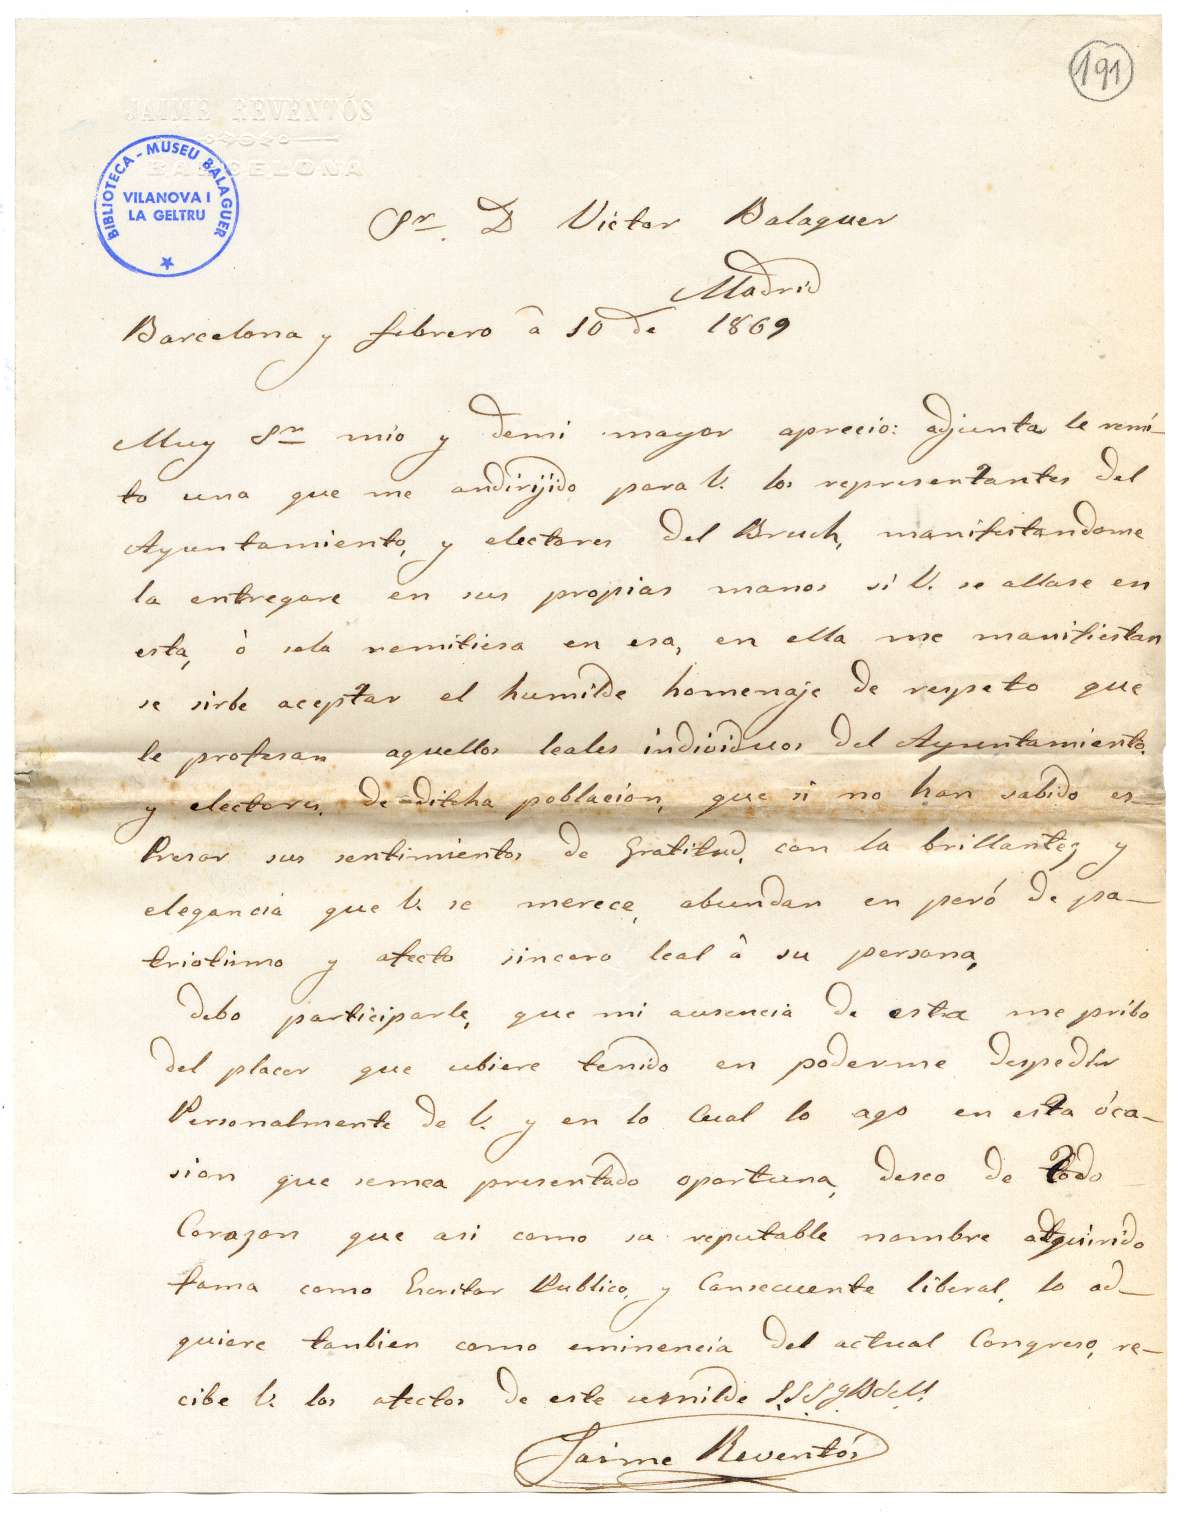 191
JAIME REVENTÓS
BARCELONA
BIBLIOTECA - MUSEU BALAGUER
VILANOVA I
LA GELTRU
Sr. D Victor Balaguer
Madrid
Barcelona y febrero â 10 de 1869
Muy Sr mio y demi mayor aprecio: adjunta le remi-
to una que me andirijido para V. los representantes del
Ayuntamiento, y electores del Bruch, manifestandome
la entregare en sus propias manos si V. se allase en
esta, ò sela remitiesa en esa, en ella me manifiestan
se sirbe aceptar el humilde homenaje de respeto que
le profesan aquellos leales individuos del Ayuntamiento.
y electores, de ditcha poblacion, que si no han sabido es-
Presar sus sentimientos de Gratitud, con la brillantez y
elegancia que V. se merece, abundan en peró de pa-
triotismo y afecto sincero leal â su persona,
debo participarle, que mi ausencia de esta me pribo
del placer que ubiere tenido en poderme despedir
Personalmente de V. y en lo Cual lo ago en esta óca-
sion que semea presentado oportuna, deseo de todo
Corazon que asi como su reputable nombre adquirido
fama como Escritor Publico, y Consecuente liberal, lo ad-
quiere tanbien como eminencia del actual Congreso, re-
cibe V. los afectos de este umilde S.S.S.q.B.S.M.
Jaime Reventós